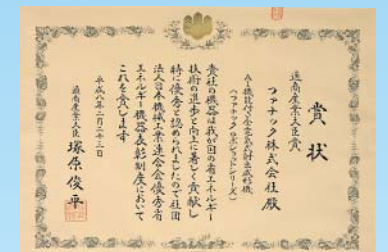 賞状
通商産業大臣賞
ファナック株式会社殿
AI機能付き全電気式射出成形機
(ファナックロボショットシリーズ)
貴社の機器は我が国の省エネルギー
技術の進歩と向上に著しく貢献し
特に優秀と認められましたので社団
法人日本機械工業連合会優秀省
エネルギー機器表彰制度において
これを賞します
平成八年二月二十三日
通商産業大臣 塚原俊平